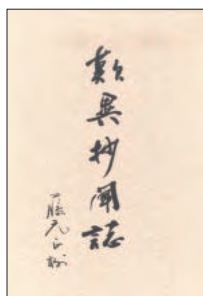 歎異抄聞誌
藤元正樹